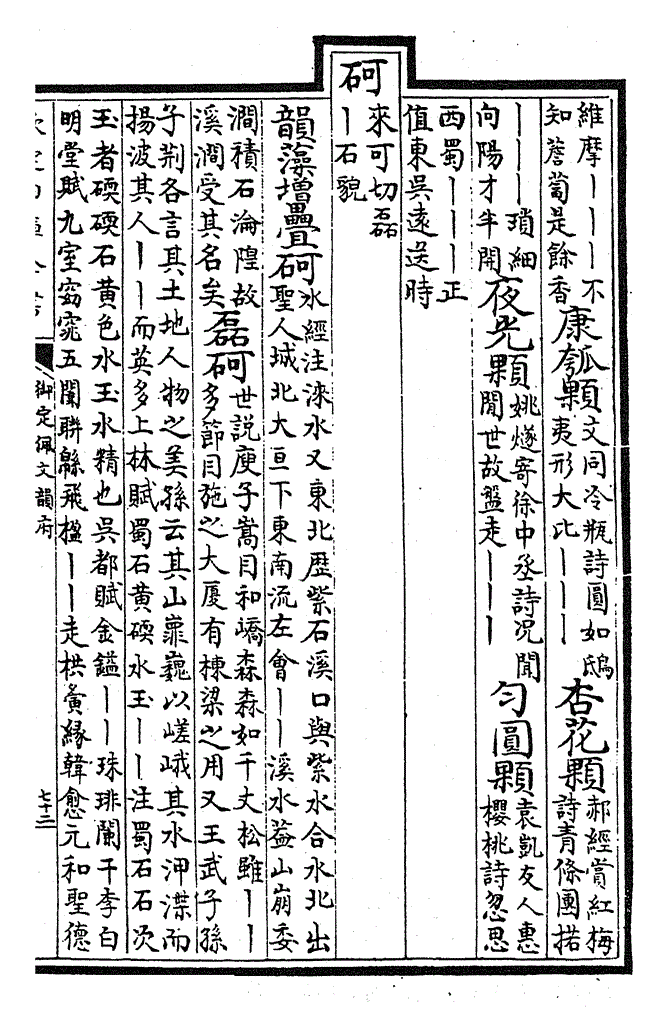 砢
維摩｜｜｜不
知薝蔔是餘香
康瓠顆
文同冷瓶詩圓如鴟
夷形大比｜｜｜
杏花顆
郝經賞紅梅
詩青條團搭
｜｜｜瑣細
向陽才半開
夜光顆
姚燧寄徐中丞詩況聞
閱世故盤走｜｜｜
匀圓顆
袁凱友人惠
櫻桃詩忽思
西蜀｜｜｜正
值東吳遠送時
來可切磊
｜石貌
韻藻增疊砢
水經注淶水又東北歷紫石溪口與紫水合水北出
聖人城北大亘下東南流左會｜｜溪水蓋山崩委
澗積石淪隍故
溪澗受其名矣
磊砢
世說庾子嵩目和嶠森森如千丈松雖｜｜
多節目施之大厦有棟梁之用又王武子孫
子荆各言其土地人物之美孫云其山嶵巍以嵯峨其水㳌渫而
揚波其人｜｜而英多上林賦蜀石黄碝水玉｜｜注蜀石石次
玉者碝碝石黄色水玉水精也吳都賦金鎰｜｜珠琲闌干李白
明堂賦九室窈窕五闈聯緜飛楹｜｜走栱夤緣韓愈元和聖德
御定佩文韻府
七十二